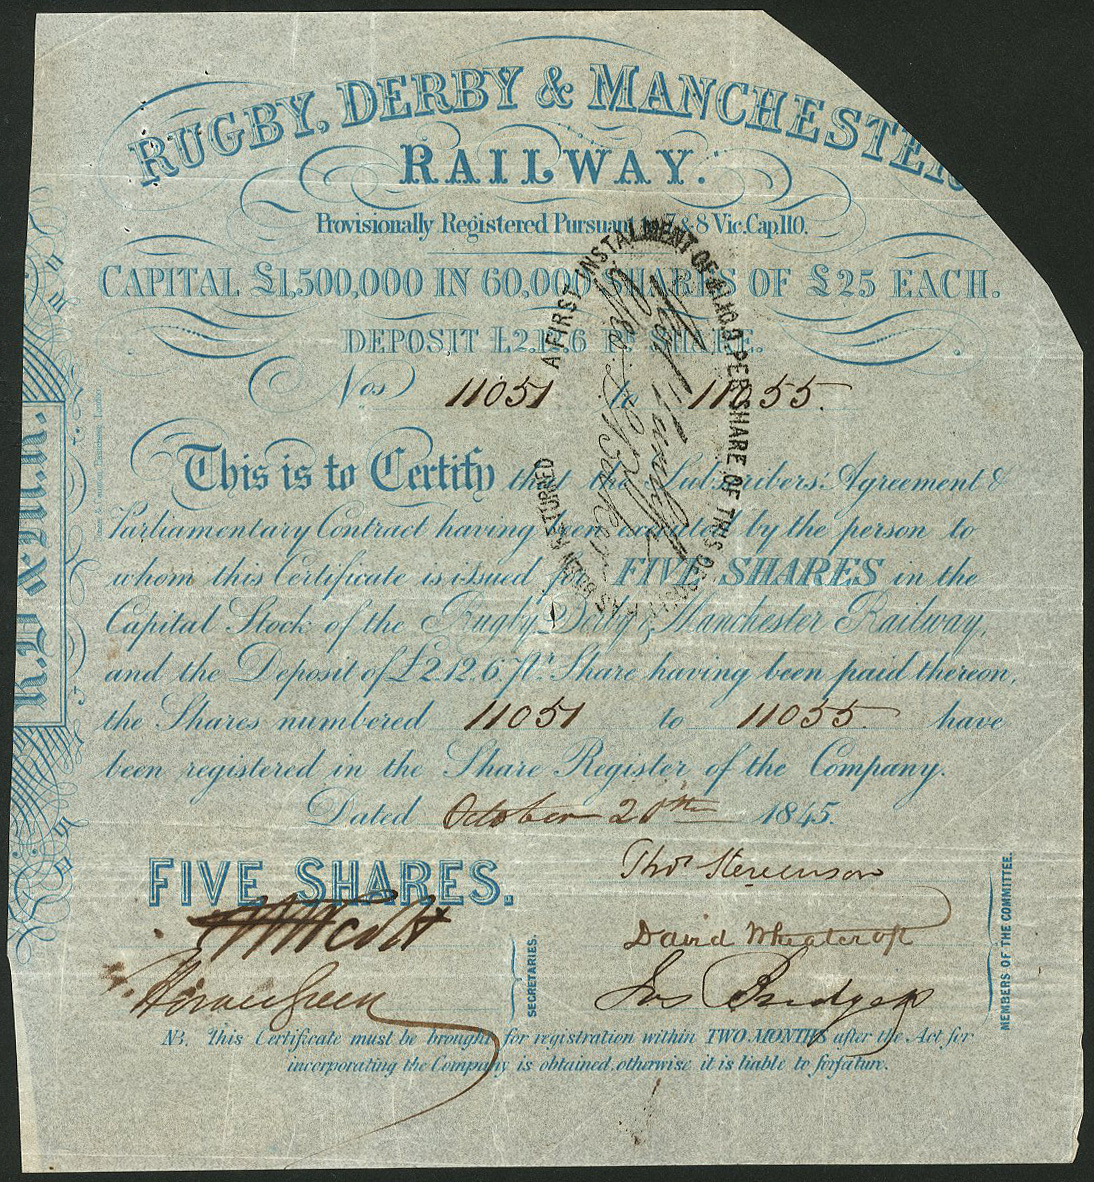 RUGBY, DERBY & MANCHESTER
RAILWAY.
Provisionally Registered Pursuant to 7 & 8 Vic. Cap 110.
CAPITAL £1,500,000 IN 60,000 SHARES OF £25 EACH.
DEPOSIT £2.12.6 Pr. SHARE.
Nos 11051 to 11055.
This is to Certify that the Subscribers' Agreement &
Parliamentary Contract having been executed by the person to
whom this Certificate is issued for FIVE SHARES in the
Capital Stock of the Rugby, Derby & Manchester Railway,
and the Deposit of £2.12.6 pr. Share having been paid thereon,
the Shares numbered 11051 to 11055 have
been registered in the Share Register of the Company.
Dated October 20th 1845.
FIVE SHARES.
Thos Stevenson
David Wheatcroft
Jos Bridges
Horace Green
SECRETARIES.
MEMBERS OF THE COMMITTEE.
NB. This Certificate must be brought for registration within TWO MONTHS after the Act for
incorporating the Company is obtained, otherwise it is liable to forfaiture.
R.D & M.R.
A FIRST INSTALMENT OF PER SHARE OF THIS DEPOSIT HAS BEEN RETURNED